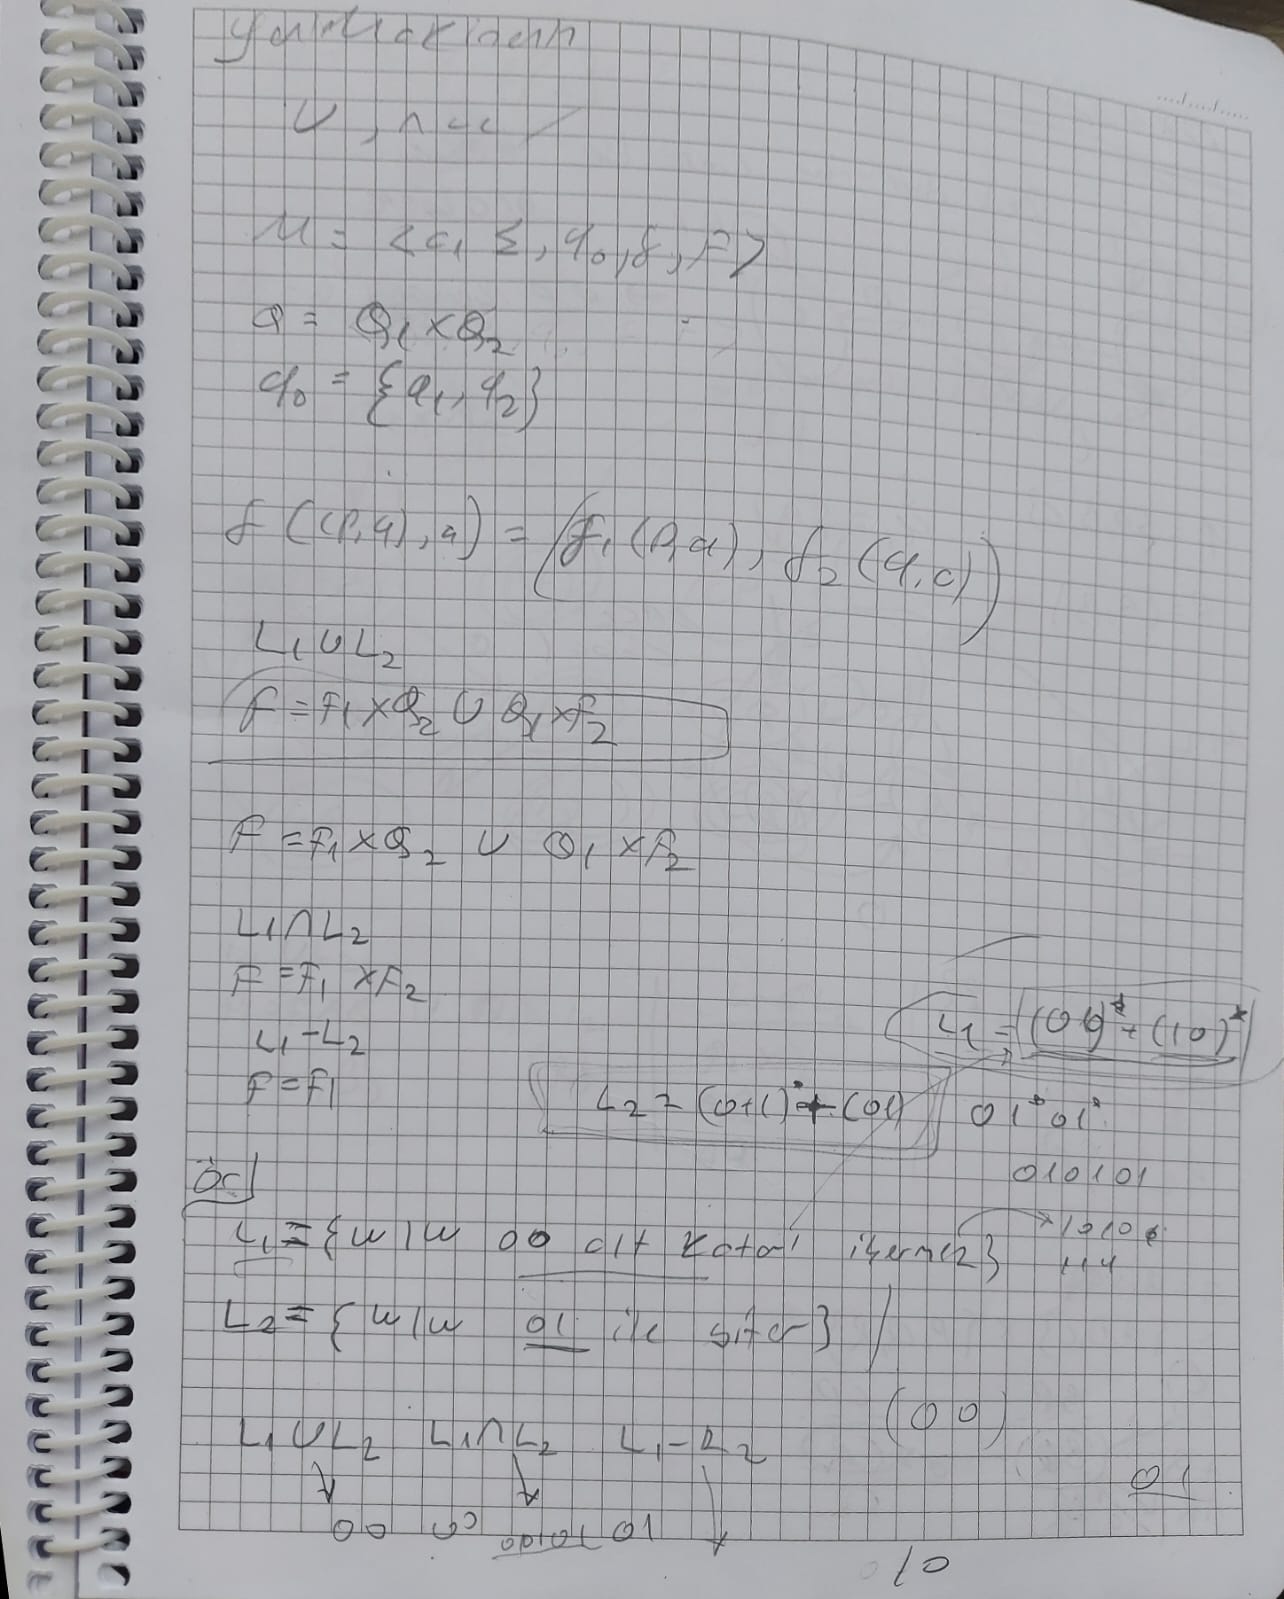 M = <Q, Σ, q₀, δ, F>
Q = Q₁ x Q₂
q₀ = {q₁, q₂}
δ ((p,q),a) = (δ₁ (p,a), δ₂ (q,a))
L₁ ∪ L₂
F = F₁ x Q₂ ∪ Q₁ x F₂
F = F₁ x Q₂ ∪ Q₁ x F₂
L₁ ∩ L₂
F = F₁ x F₂
L₁ - L₂
F = F₁
L₁ = (01)* + (10)*
L₂ = (0+1)* + (01)
01* 01*
010101
L₁ = {w | w 00 alt katarı içermez}
1010
L₂ = {w | w 01 ile biter}
(00)
L₁ ∪ L₂ L₁ ∩ L₂ L₁ - L₂
01
00 10
10